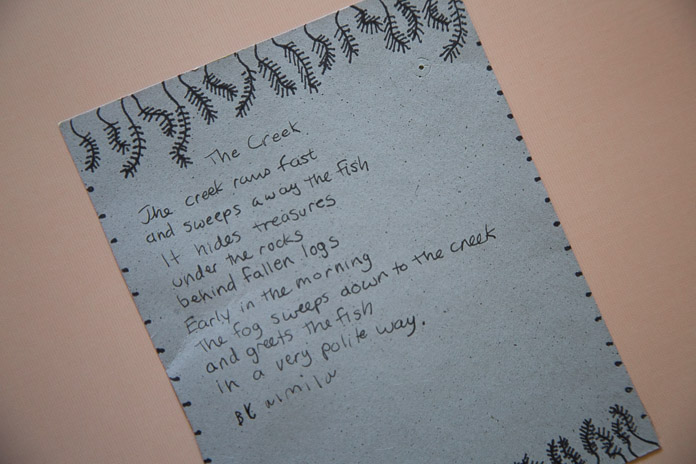 The Creek
The creek runs fast
and sweeps away the fish
It hides treasures
under the rocks
behind fallen logs
Early in the morning
The fog sweeps down to the creek
and greets the fish
in a very polite way.